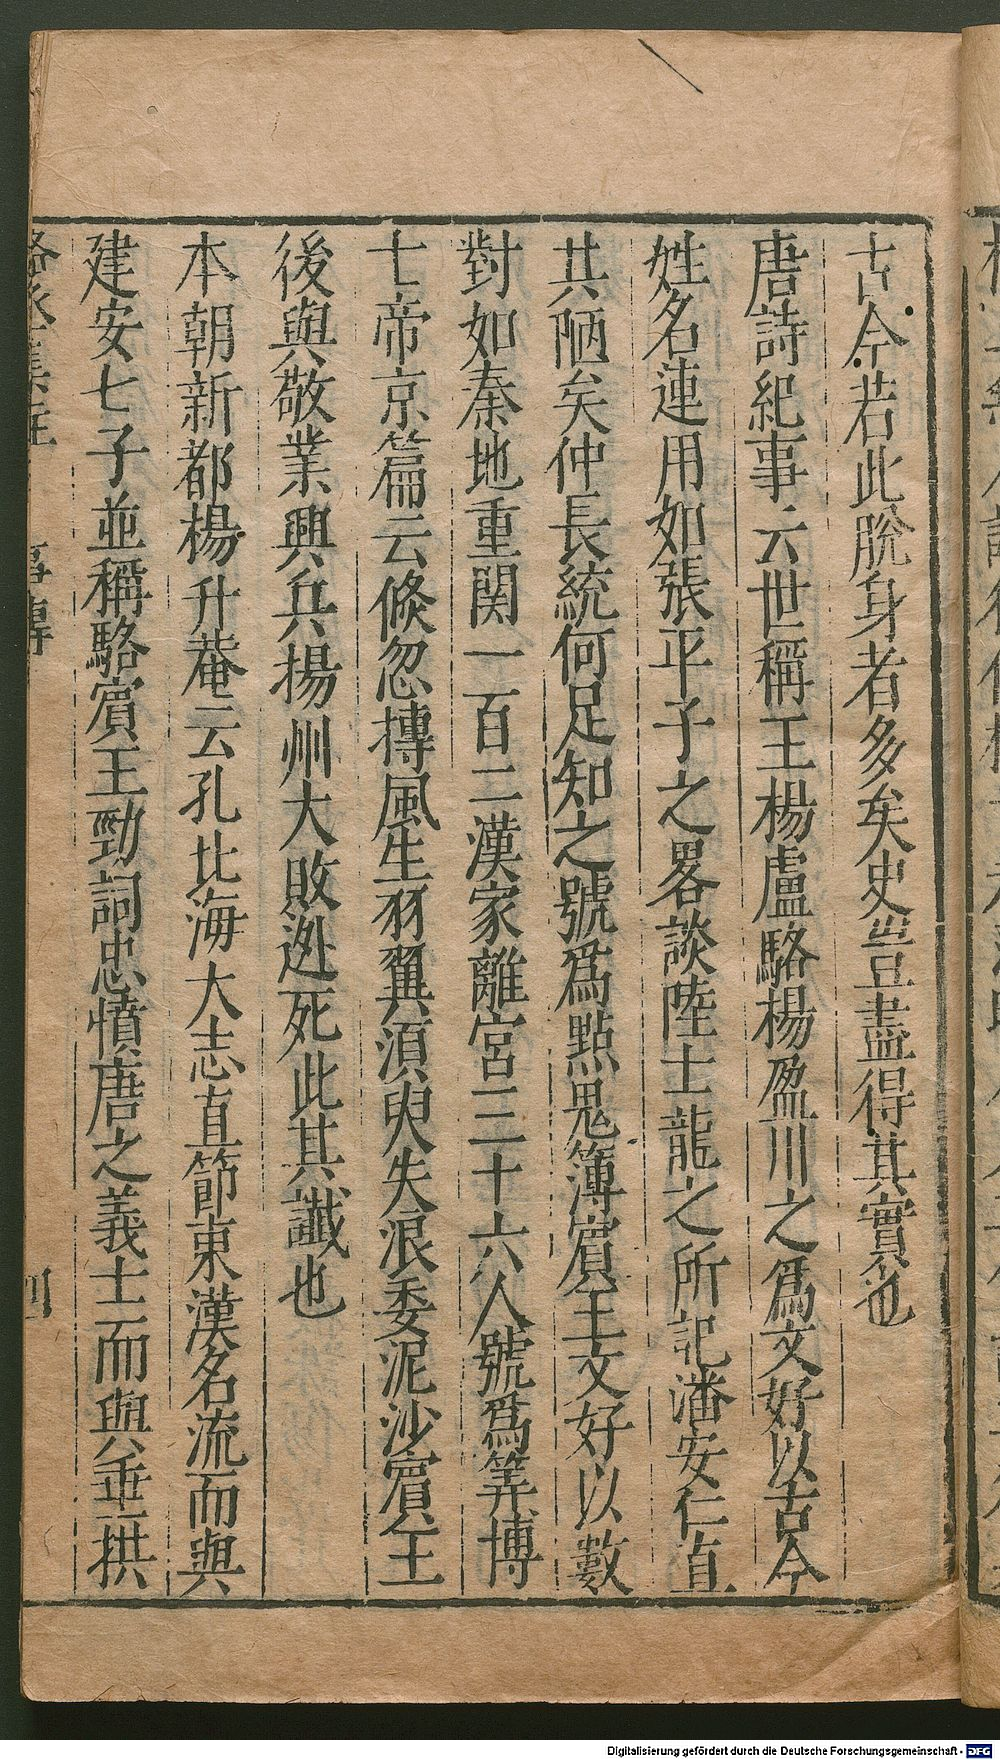 古今若此脫身者多矣史豈盡得其實也
唐詩紀事云世稱王楊盧駱楊盈川之爲文好以古今
姓名連用如張平子之畧談陸士龍之所記潘安仁直
其陋矣仲長統何足知之號爲點鬼簿賔王文好以數
對如秦地重関一百二漢家離宮三十六人號爲筭博
七帝京篇云倐忽摶風生羽翼湏臾失浪委泥沙賔王
後與敬業興兵揚州大敗迯死此其讖也
本朝新都楊升菴云孔北海大志直節東漢名流而與
建安七子並稱駱賔王勁詞忠憤唐之義士而與垂拱
駱丞集註
本傳
四
Digitalisierung gefördert durch die Deutsche Forschungsgemeinschaft - DFG